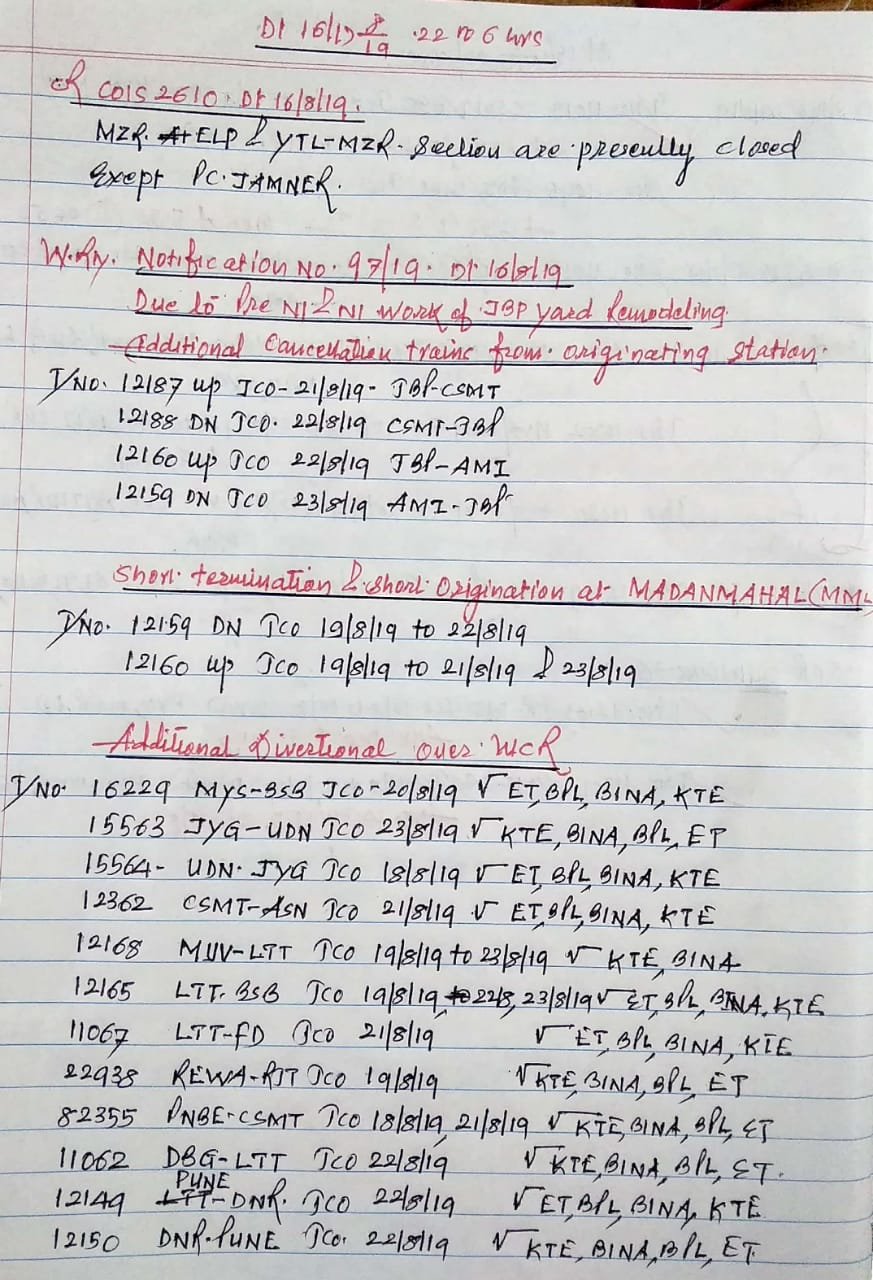 Dt 16/17 8/19 .22 to 6 hrs
COIS 2610. Dt 16/8/19.
MZR. ELP & YTL-MZR. Section are presently closed
Exept PC. JAMNER.
W.Rly. Notification No. 97/19. Dt 16/8/19
Due to Pre NI & NI work of JBP yard Remodeling.
Additional Cancellation trains from. originating station.
T/No. 12187 up JCO-21/8/19- JBP-CSMT
12188 DN JCO. 22/8/19 CSMT-JBP
12160 up JCO 22/8/19 JBP-AMI
12159 DN JCO 23/8/19 AMI-JBP
Short. termination & short. Origination at MADANMAHAL (MML
T/No. 12159 DN JCO 19/8/19 to 22/8/19
12160 up JCO 19/8/19 to 21/8/19 & 23/8/19
Additional Divertional over. WCR
T/No. 16229 MYS-BSB JCO-20/8/19 √ ET, BPL, BINA, KTE
15563 JYG-UDN JCO 23/8/19 √ KTE, BINA, BPL, ET
15564- UDN. JYG JCO 18/8/19 √ ET, BPL, BINA, KTE
12362 CSMT-ASN JCO 21/8/19 √ ET, BPL, BINA, KTE
12168 MUV-LTT JCO 19/8/19 to 23/8/19 √ KTE, BINA
12165 LTT. BSB JCO 19/8/19, 22/8, 23/8/19 √ ET, BPL, BINA, KTE
11067 LTT-FD JCO 21/8/19 √ ET, BPL, BINA, KTE
22938 REWA-RJT JCO 19/8/19 √ KTE, BINA, BPL, ET
82355 PNBE-CSMT JCO 18/8/19, 21/8/19 √ KTE, BINA, BPL, ET
11062 DBG-LTT JCO 22/8/19 √ KTE, BINA, BPL, ET.
12149 PUNE-DNR. JCO 22/8/19 √ ET, BPL, BINA, KTE
12150 DNR-PUNE JCO. 22/8/19 √ KTE, BINA, BPL, ET